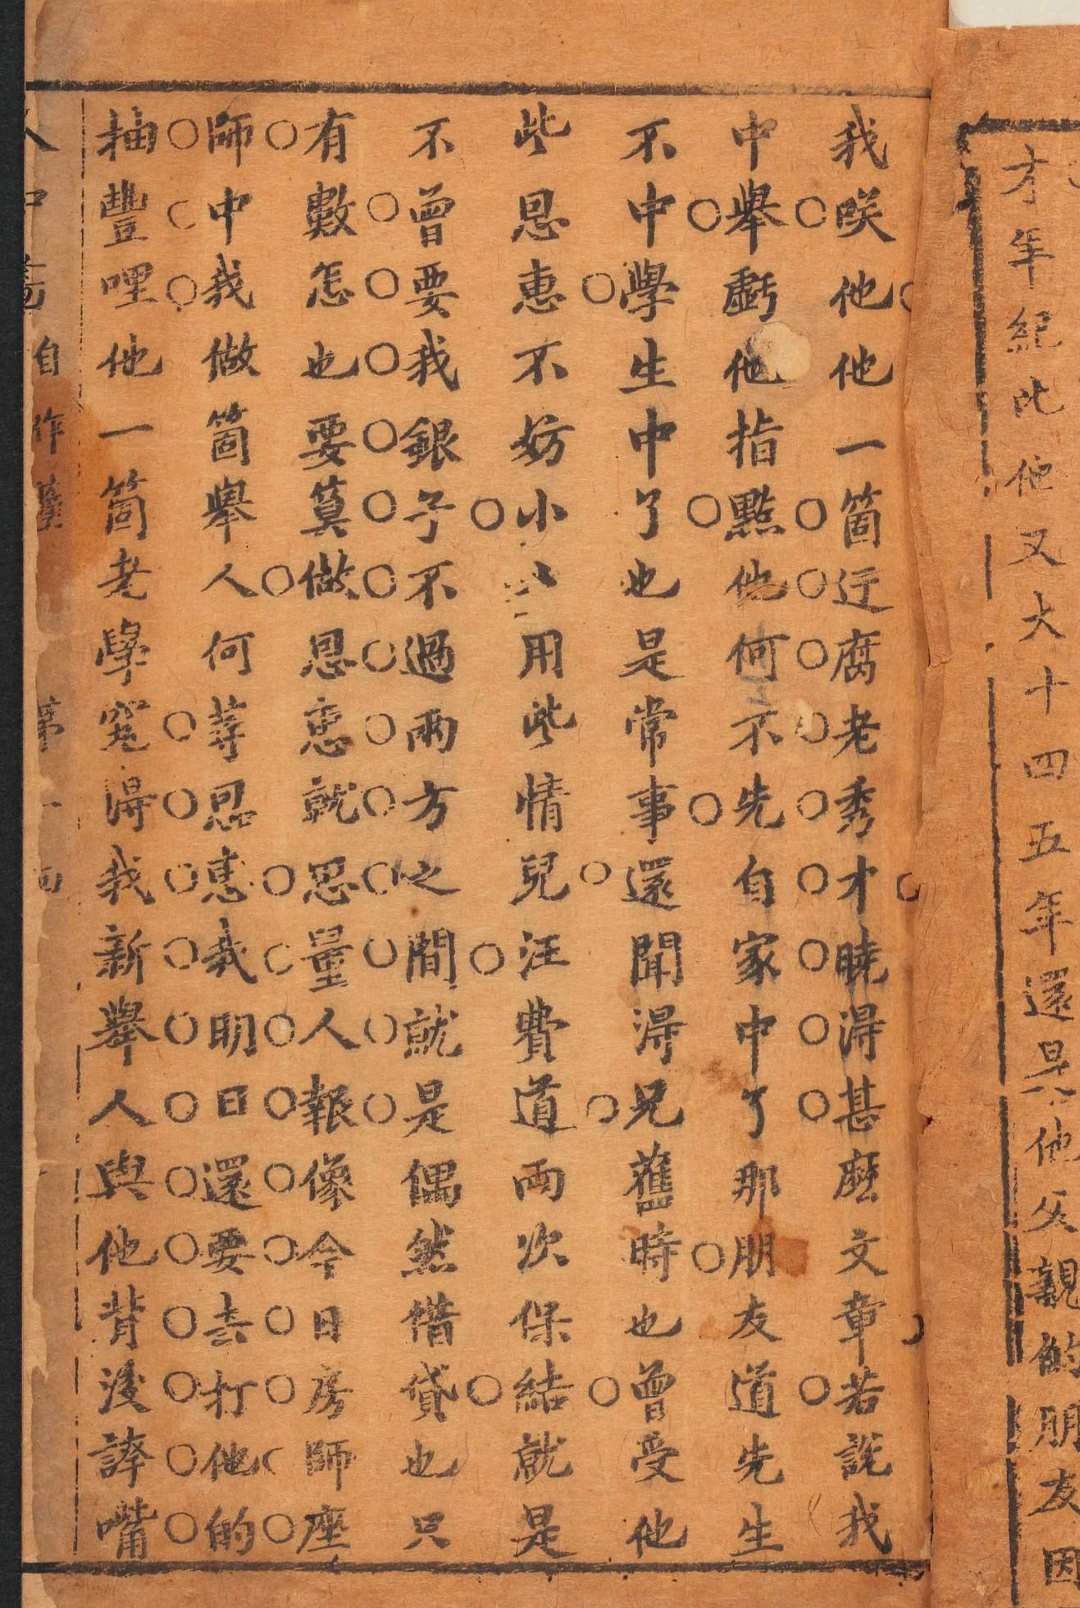 才年紀比他又大十四五年還是他父親的朋友因
我咲他他一箇迂腐老秀才曉得甚麽文章若説我
中舉虧他指點他何不先自家中了那朋友道先生
不中學生中了也是常事還聞得兄舊時也曾受他
些恩惠不妨小用些情兒汪費道兩次保結就是
不曾要我銀子不過兩方之間就是偶然借貸也只
有數怎也要算做恩惠就思量人報像今日房師座
師中我做箇舉人何等恩惠我明日還要去打他的
抽豐哩他一箇老學究得我新舉人與他背後誇嘴
人中畫 自作孽 第一 回